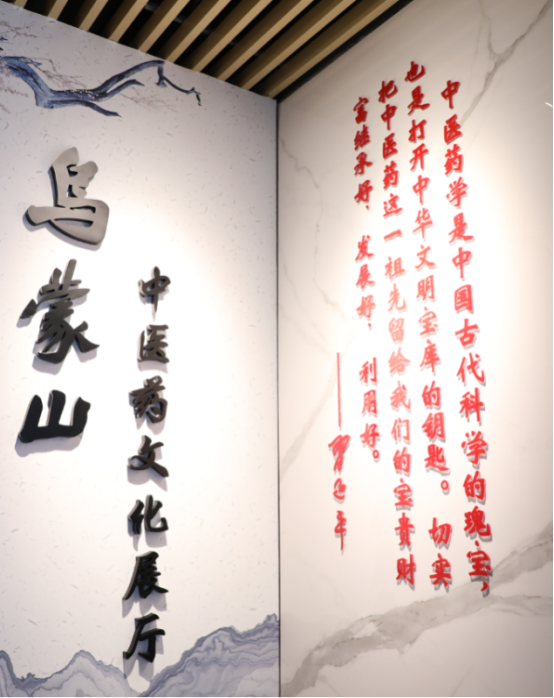 乌蒙山
中医药文化展厅
中医药学是中国古代科学的瑰宝，
也是打开中华文明宝库的钥匙。切实
把中医药这一祖先留给我们的宝贵财
富继承好、发展好、利用好。
——习近平